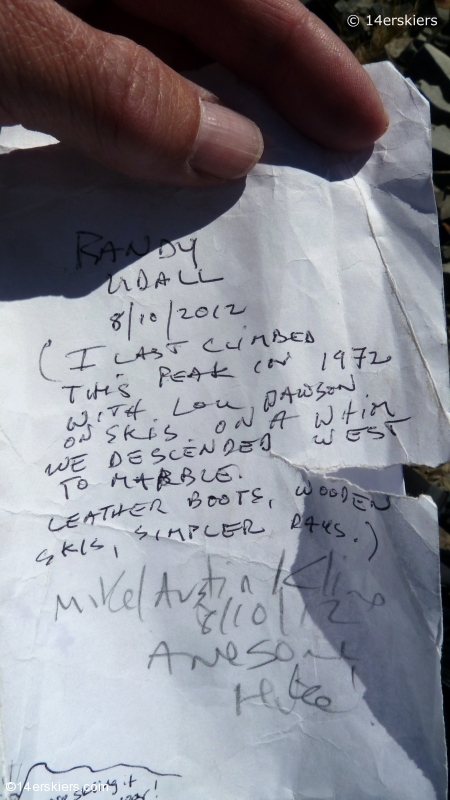 © 14erskiers
RANDY
UDALL
8/10/2012
(I LAST CLIMBED
THIS PEAK IN 1972
WITH LOU DAWSON
ON SKIS. ON A WHIM
WE DESCENDED WEST
TO MARBLE.
LEATHER BOOTS, WOODEN
SKIS, SIMPLER DAYS.)
Mike/Austin/Kline
8/10/12
AWESOME
Hike!
©14erskiers.com
it